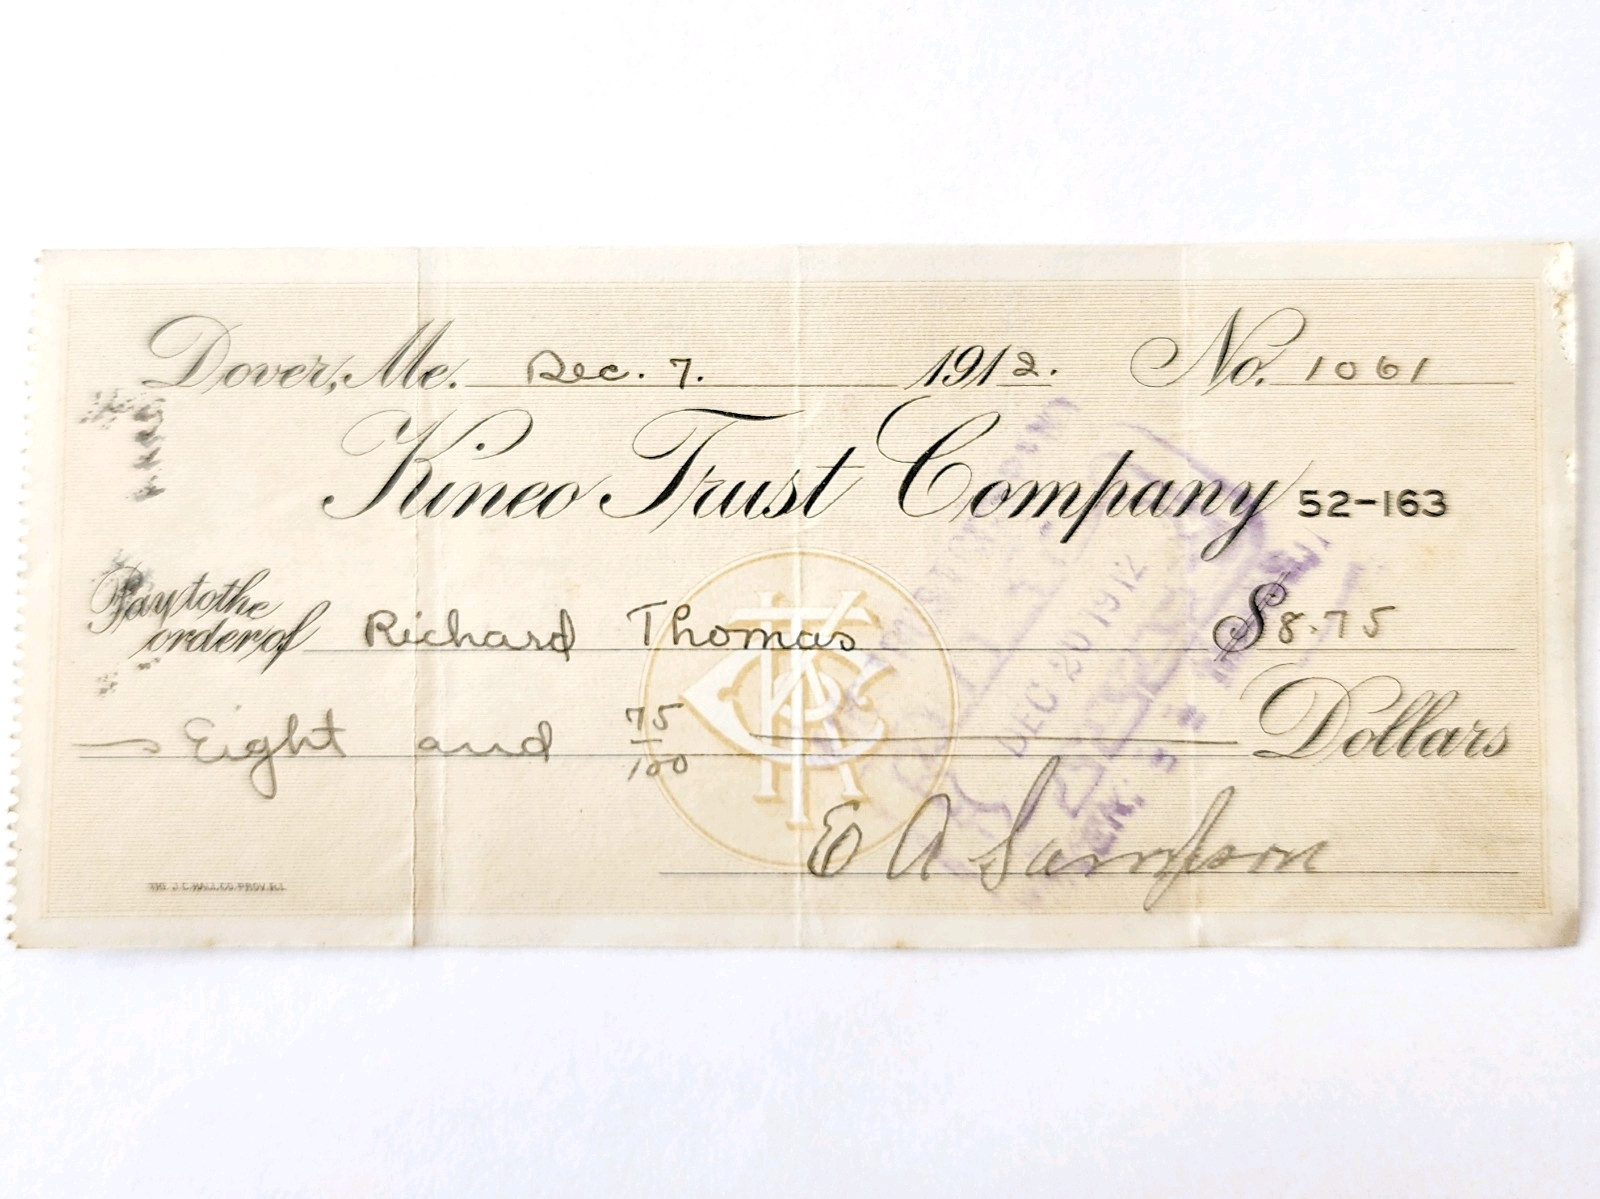 Dover, Me. Dec. 7. 1912. No. 1061
Kineo Trust Company 52-163
Pay to the
order of Richard Thomas $8.75
Eight and 75/100 Dollars
E A Sampson
THE J.C. HALL CO. PROV. R.I.
DEC 20 1912